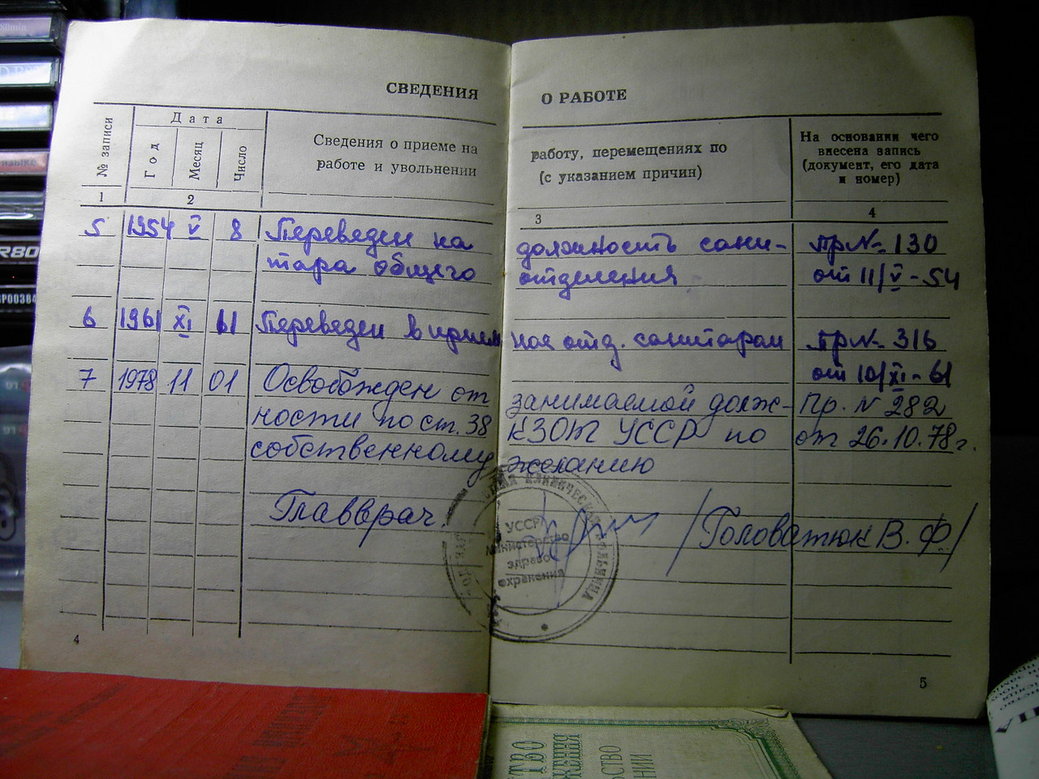 СВЕДЕНИЯ О РАБОТЕ
№ записи
Дата
Год
Месяц
Число
Сведения о приеме на
работе и увольнении
работу, перемещениях по
(с указанием причин)
На основании чего
внесена запись
(документ, его дата
и номер)
1 2 3 4
5 1954 V 8 Переведен на должность сани- Пр №- 130
тара общего отделения от 11/V-54
6 1961 XI 61 Переведен в прием ное отд. санитаром Пр №- 316
от 10/XI-61
7 1978 11 01 Освобожден от занимаемой долж- Пр. N 282
ности по ст. 38 КЗОТ УССР по от 26.10.78 г.
собственному желанию
Главврач /Головатюк В. Ф./
УССР
Министерство
здраво-
охранения
4
5